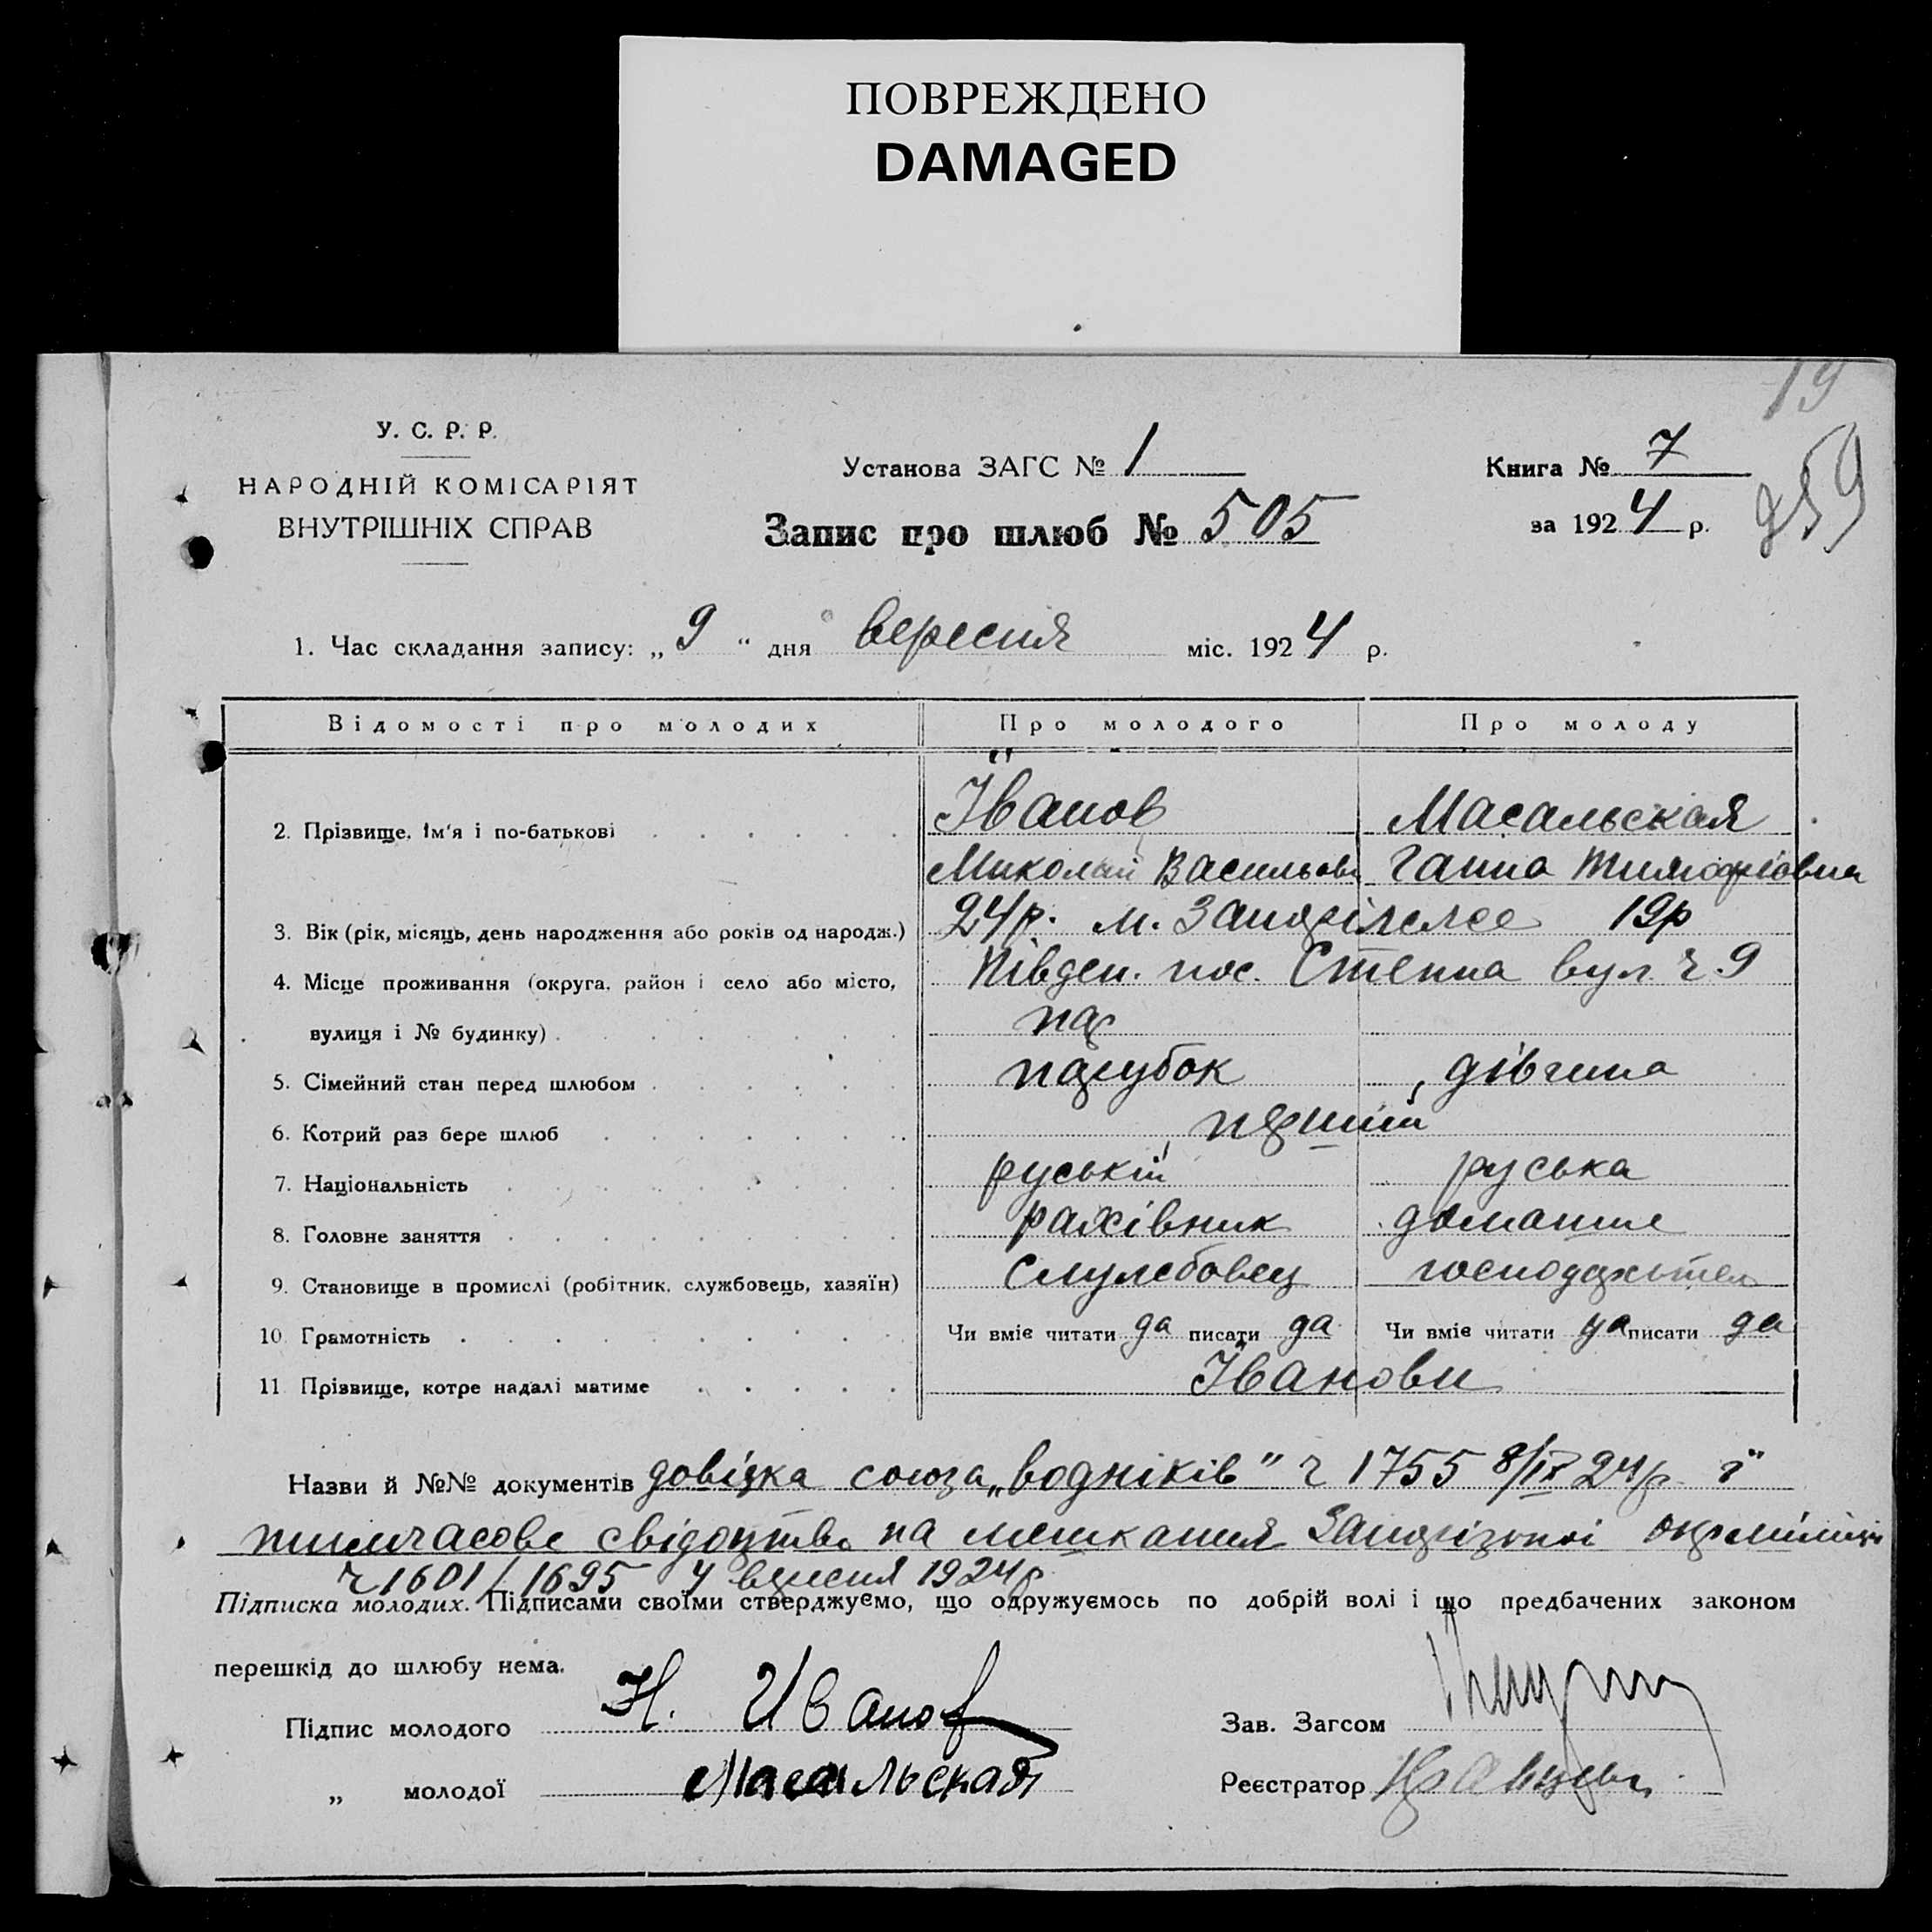 ПОВРЕЖДЕНО
DAMAGED
19
259
У. С. Р. Р.
НАРОДНІЙ КОМІСАРІЯТ
ВНУТРІШНІХ СПРАВ
Установа ЗАГС № 1
Запис про шлюб № 505
Книга № 7
за 1924 р.
1. Час складання запису: „ 9 “ дня вересня міс. 1924 р.
Відомості про молодих Про молодого Про молоду
2. Прізвище, ім'я і по-батькові Їванов Масальская
Миколай Васильов Ганна Тимофіовна
3. Вік (рік, місяць, день народження або років од народж.) 24р. м. 19р
4. Місце проживання (округа, район і село або місто, Півден. пос. Степна вул. ч. 9
вулиця і № будинку) пар
5. Сімейний стан перед шлюбом парубок дівчина
6. Котрий раз бере шлюб перший
7. Національність руський руська
8. Головне заняття рахівник домашне
9. Становище в промислі (робітник, службовець, хазяїн) Службовец
10 Грамотність Чи вміє читати да писати да Чи вміє читати да писати да
11 Прізвище, котре надалі матиме Їванови
Назви й №№ документів довідка союза „водніків" ч 1755 8/IX 24р. ї
тимчасове свідоцтво на мешкання
ч 1601/1695 4 вересня 1924р
Підписка молодих. Підписами своїми стверджуємо, що одружуємось по добрій волі і що предбачених законом
перешкід до шлюбу нема.
Підпис молодого Н. Иванов
Зав. Загсом
„ молодої Масальская
Реєстратор